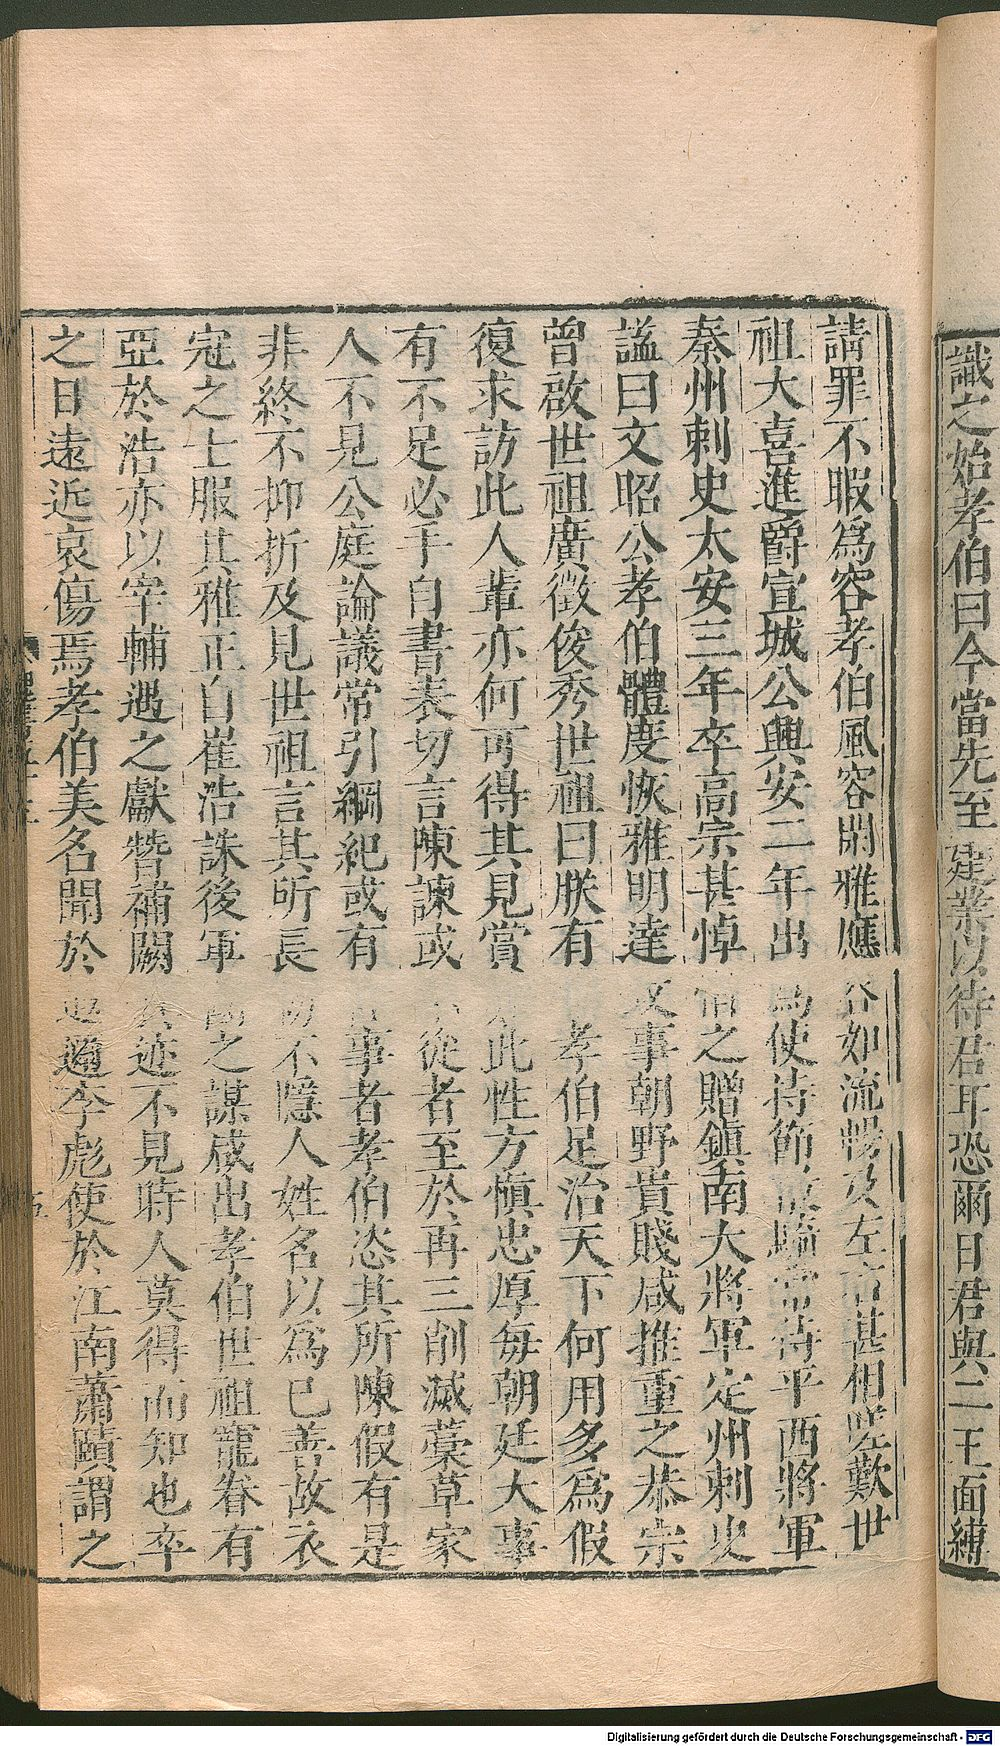 識之始孝伯曰今當先至建業以待君耳恐爾日君與二王面縛
請罪不暇為容孝伯風容閑雅應答如流暢及左右甚相嗟歎世
祖大喜進爵宣城公興安二年出為使持節散騎常侍平西將軍
秦州刺史太安三年卒高宗甚悼惜之贈鎮南大將軍定州刺史
諡曰文昭公孝伯體度恢雅明達政事朝野貴賤咸推重之恭宗
曾啟世祖廣徵俊秀世祖曰朕有孝伯足治天下何用多為假
復求訪此人輩亦何可得其見賞如此性方慎忠厚每朝廷大事
有不足必手自書表切言陳諫或不從者至於再三削滅藁草家
人不見公庭論議常引綱紀或有言事者孝伯恣其所陳假有是
非終不抑折及見世祖言其所長初不隱人姓名以為己善故衣
冠之士服其雅正自崔浩誅後軍國之謀咸出孝伯世祖寵眷有
亞於浩亦以宰輔遇之獻替補闕其迹不見時人莫得而知也卒
之日遠近哀傷焉孝伯美名聞於遐邇李彪使於江南蕭賾謂之
Digitalisierung gefördert durch die Deutsche Forschungsgemeinschaft - DFG